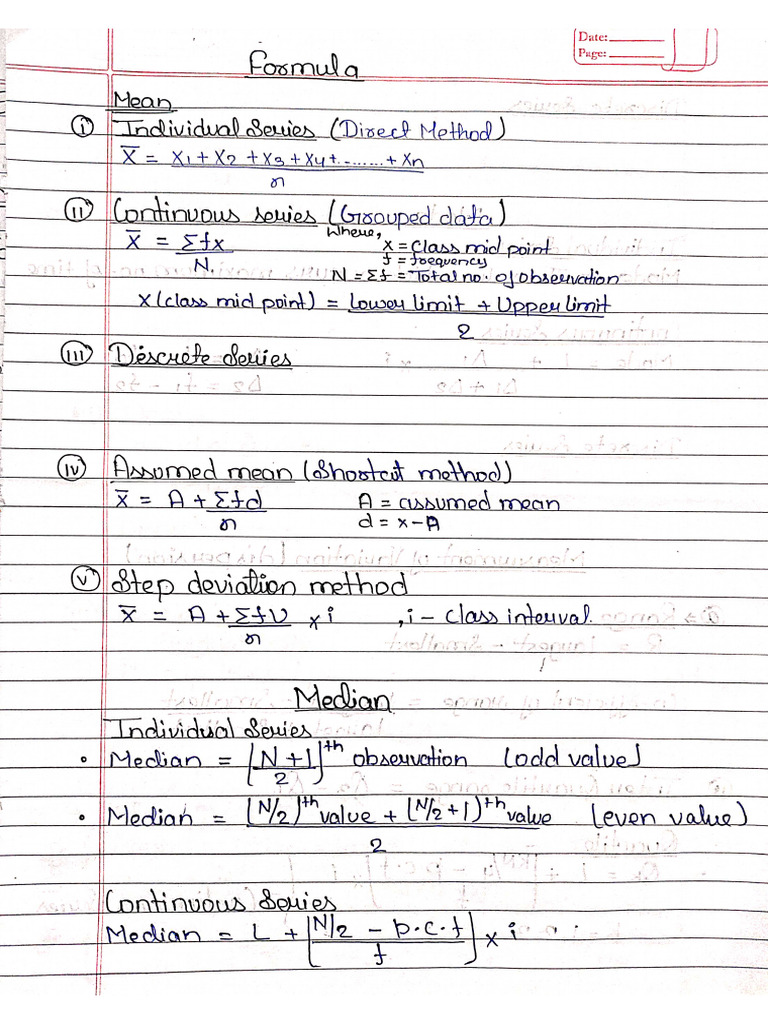 Date:
Page:
Formula
Mean
(i) Individual Series (Direct Method)
X̄ = X1 + X2 + X3 + X4 + ....... + Xn
n
(ii) Continuous series (Grouped data)
X̄ = Σfx
N
Where,
x = Class mid point
f = frequency
N = Σf = Total no. of observation
X (class mid point) = Lower limit + Upper limit
2
(iii) Descrete Series
(iv) Assumed mean (Shortcut method)
X̄ = A + Σfd
n
A = assumed mean
d = x - A
(v) Step deviation method
X̄ = A + ΣfU × i , i - class interval.
n
Median
Individual Series
• Median = [N+1]th observation (odd value)
2
• Median = (N/2)th value + (N/2+1)th value (even value)
2
Continuous Series
Median = L + [N/2 - p.c.f] × i
f